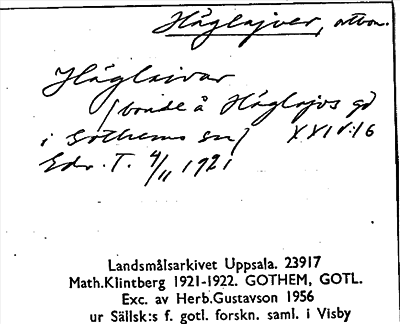 Häglajver, ortbon.
Häglaivar
(bonde å Häglajvs gd
i Gothems sn) XXIV:16
Edv. T. 4/11 1921
Landsmålsarkivet Uppsala. 23917
Math.Klintberg 1921-1922. GOTHEM, GOTL.
Exc. av Herb.Gustavson 1956
ur Sällsk:s f. gotl. forskn. saml. i Visby